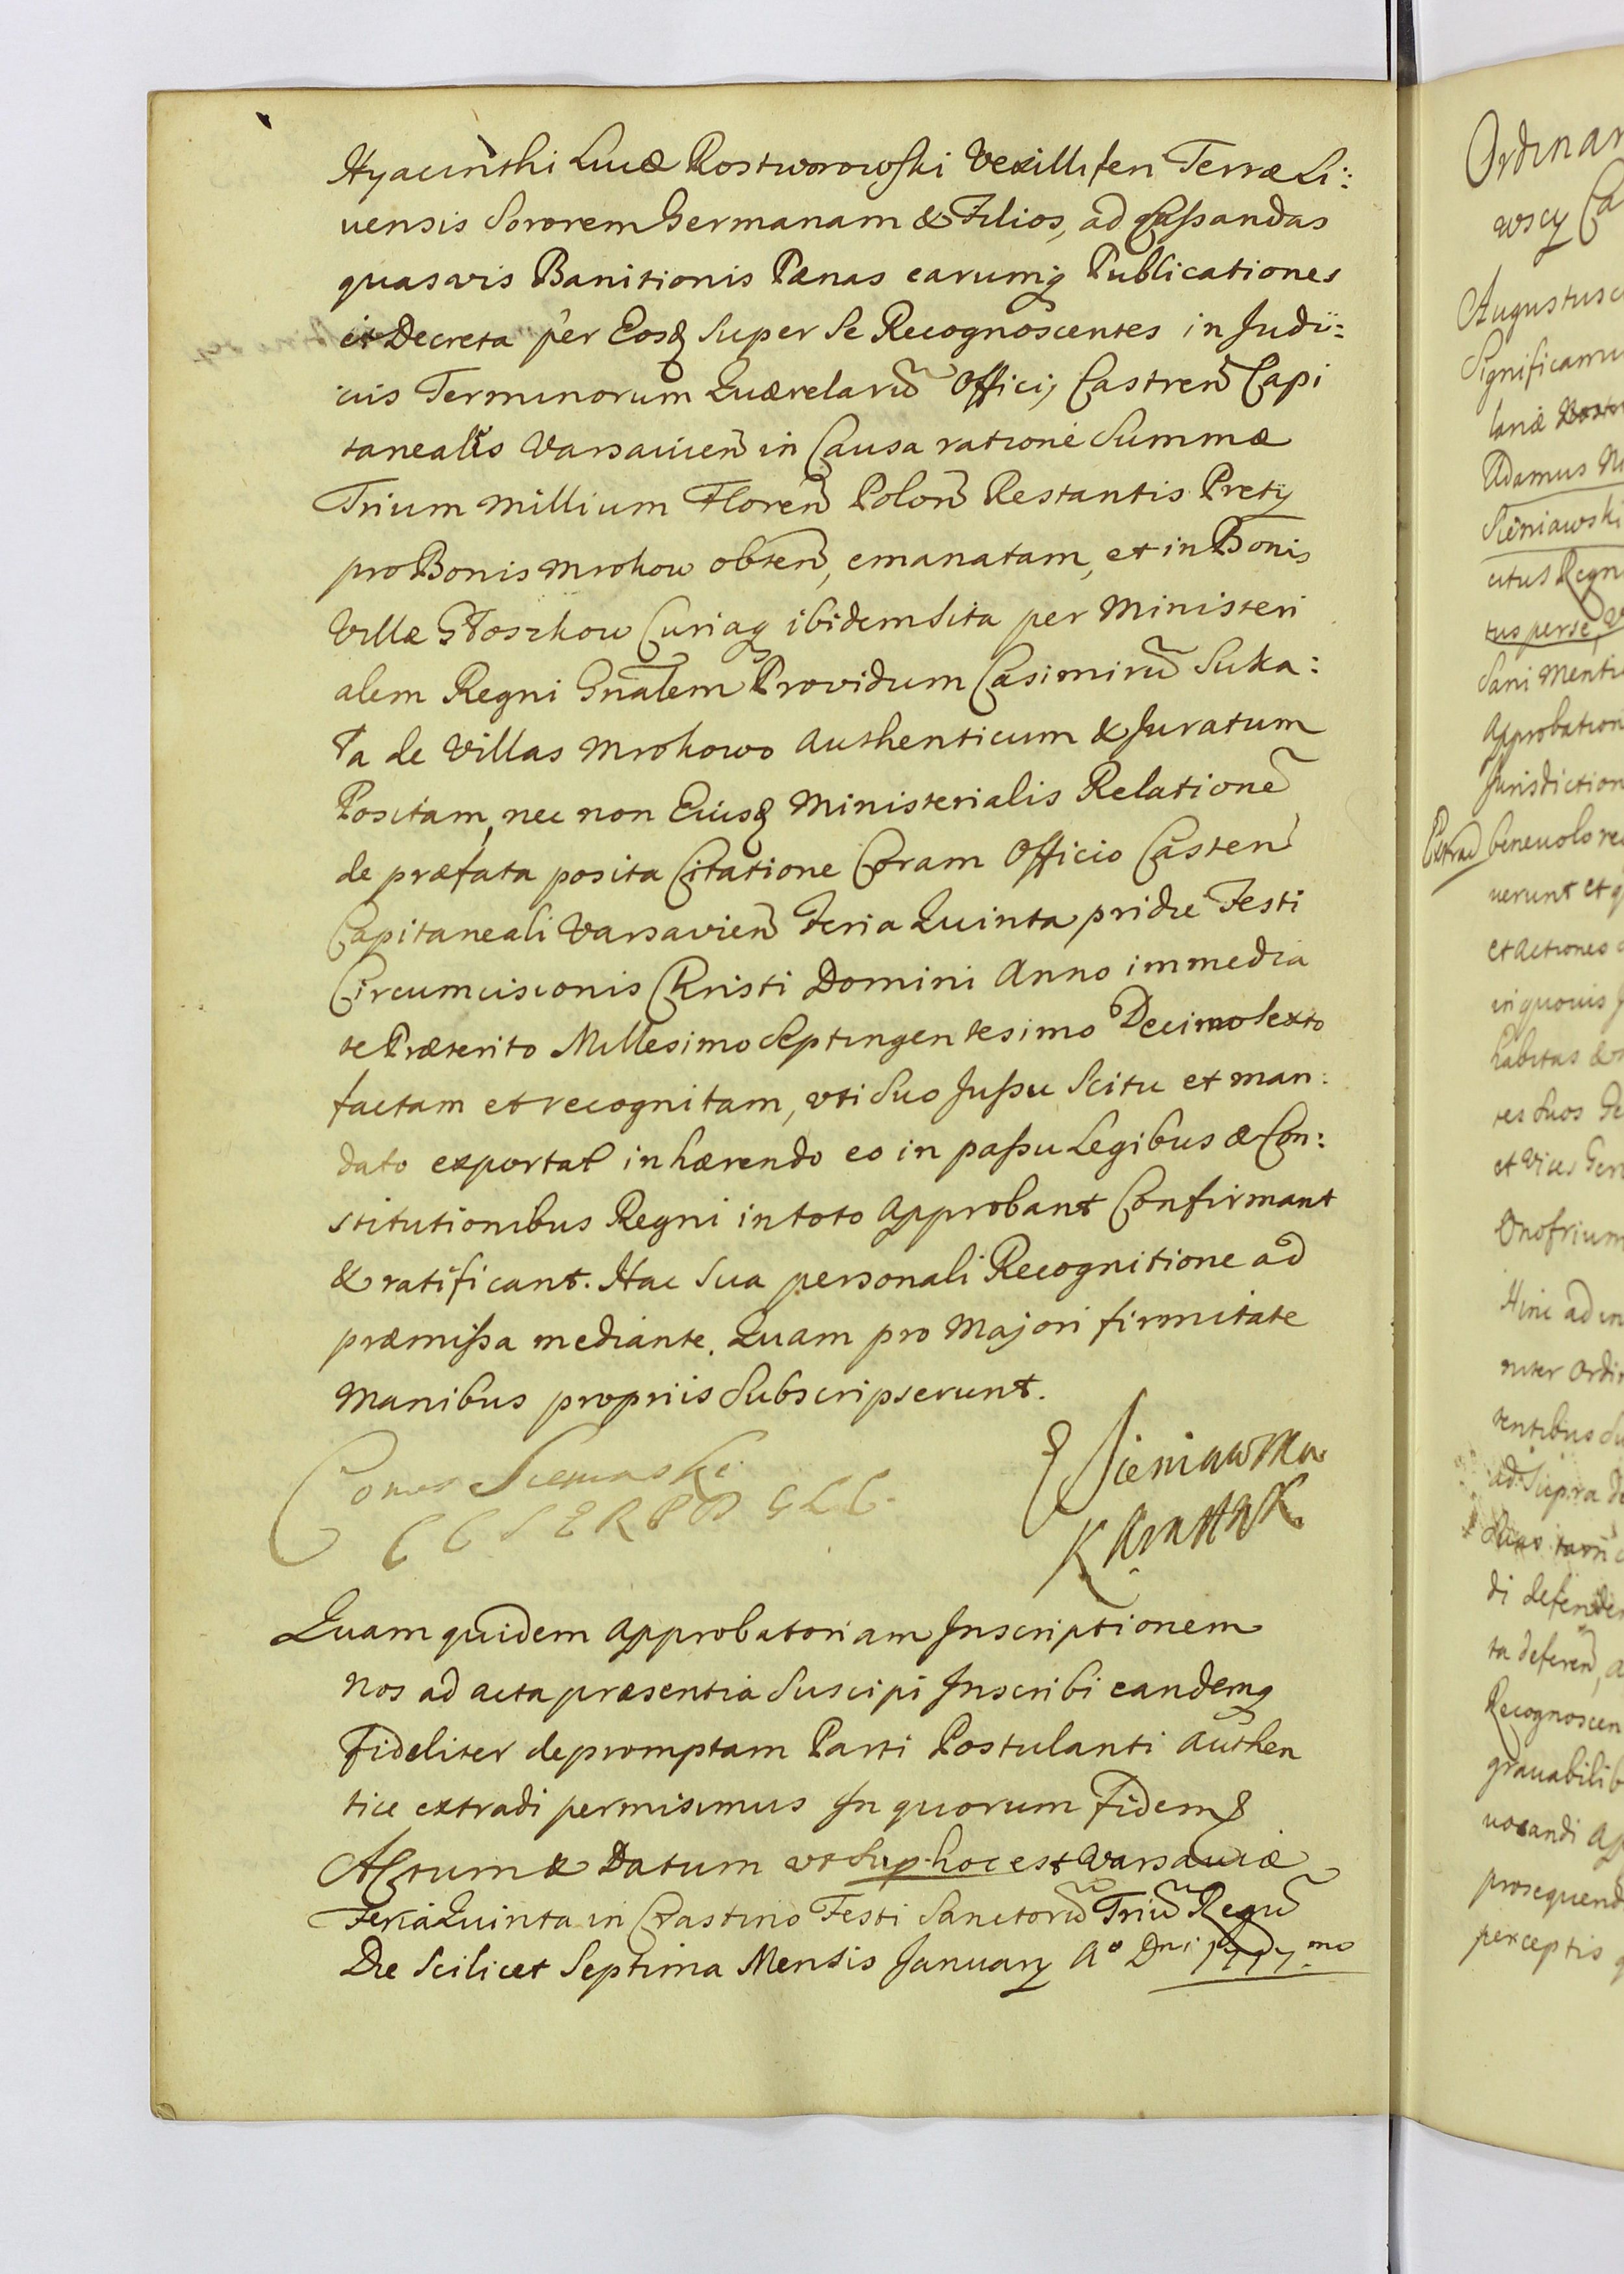 Hyacinthi Lucæ Rostworowski Vexilliferi Terræ Li:
uensis Sororem Germanam & Filios, ad Cassandas
quasvis Banitionis Pænas earumq Publicationes
et Decreta per Eosd Super Se Recognoscentes in Judi:
ciis Terminorum Quærelarũ Officij Castren̄ Capi
tanealis Varsavien̄ in Causa ratione Summæ
Trium Millium Floren̄ Polon̄ Restantis Pretij
pro Bonis Mrokow obten̄, emanatam, et in Bonis
Villæ Głoszkow Curiaq ibidem sita per Ministeri
alem Regni Gnãlem Providum Casimirũ Suka:
ła de Villas Mrokowo Authenticum & Juratum
Positam, nec non Eiusd Ministerialis Relationẽ
de præfata posita Citatione Coram Officio Casten̄
Capitaneali Varsavien̄ Feria Quinta pridie Festi
Circumcisionis Christi Domini Anno immedia
te Præterito Millesimo Septingentesimo Decimo Sexto
factam et recognitam, uti Suo Jussu Scitu et man:
dato exportat inhærendo eo in passu Legibus & Con:
stitutionibus Regni in toto Approbant Confirmant
& ratificant. Hac Sua personali Recognitione ad
præmissa mediante. Quam pro Majori firmitate
Manibus propriis Subscripserunt.
E Sieniawska
Quam quidem Approbatoriam Inscriptionem
Nos ad acta præsentia Suscipi Inscribi eandemq
Fideliter depromptam Parti Postulanti Authen
tice extradi permisimus In quorum Fidem &
Actum & Datum ut Sup. hoc est Varsaviæ
Feria Quinta in Crastino Festi Sanctorũ Triũ Regũ
Die Scilicet Septima Mensis Januarij Ao Dni 1717.mo
Ordinar
wscy Ca
Augustus
Significamu
laniæ Nostr
Adamus
Sieniawski
utus Regn
tus perse,
Sani Menti
Approbation
Jurisdiction
Extrad benevolo re
uerunt et q
et actiones
in quovis
habitas &
res Suos
et Vices Ger
Onofrium
Hinc ad
niter Ordi
tentibus Su
ad Supra de
di defende
ta deferen̄
Recognoscen
gravabilib
uocandi Ap
prosequend
perceptis